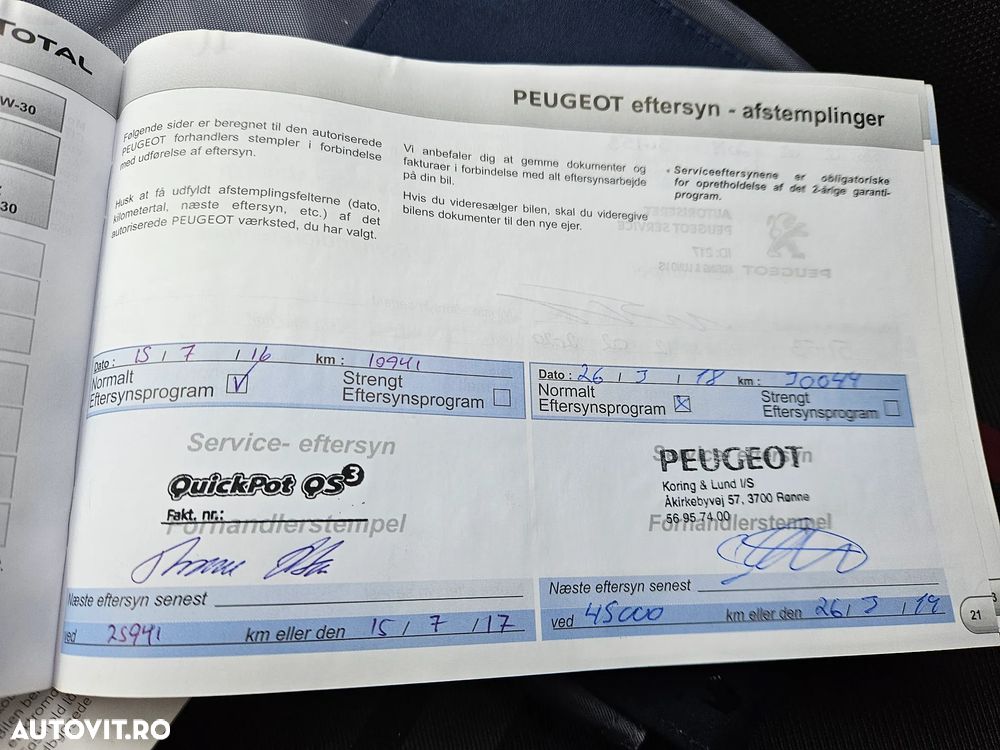 TOTAL
W-30
30
PEUGEOT eftersyn - afstemplinger
Følgende sider er beregnet til den autoriserede
PEUGEOT forhandlers stempler i forbindelse
med udførelse af eftersyn.
Husk at få udfyldt afstemplingsfelterne (dato,
kilometertal, næste eftersyn, etc.) af det
autoriserede PEUGEOT værksted, du har valgt.
Vi anbefaler dig at gemme dokumenter og
fakturaer i forbindelse med alt eftersynsarbejde
på din bil.
Hvis du videresælger bilen, skal du videregive
bilens dokumenter til den nye ejer.
• Serviceeftersynene er obligatoriske
for opretholdelse af det 2-årige garanti-
program.
Dato : 15 / 7 / 16 km : 10941
Normalt
Eftersynsprogram
Strengt
Eftersynsprogram
Service- eftersyn
QuickPot QS3
Fakt. nr.:
Forhandlerstempel
Næste eftersyn senest
ved 25941 km eller den 15 / 7 / 17
Dato : 26 / 3 / 18 km : 30044
Normalt
Eftersynsprogram
Strengt
Eftersynsprogram
Service- eftersyn
PEUGEOT
Koring & Lund I/S
Åkirkebyvej 57, 3700 Rønne
56 95 74 00
Forhandlerstempel
Næste eftersyn senest
ved 45000 km eller den 26 / 3 / 19
21
AUTOVIT.RO